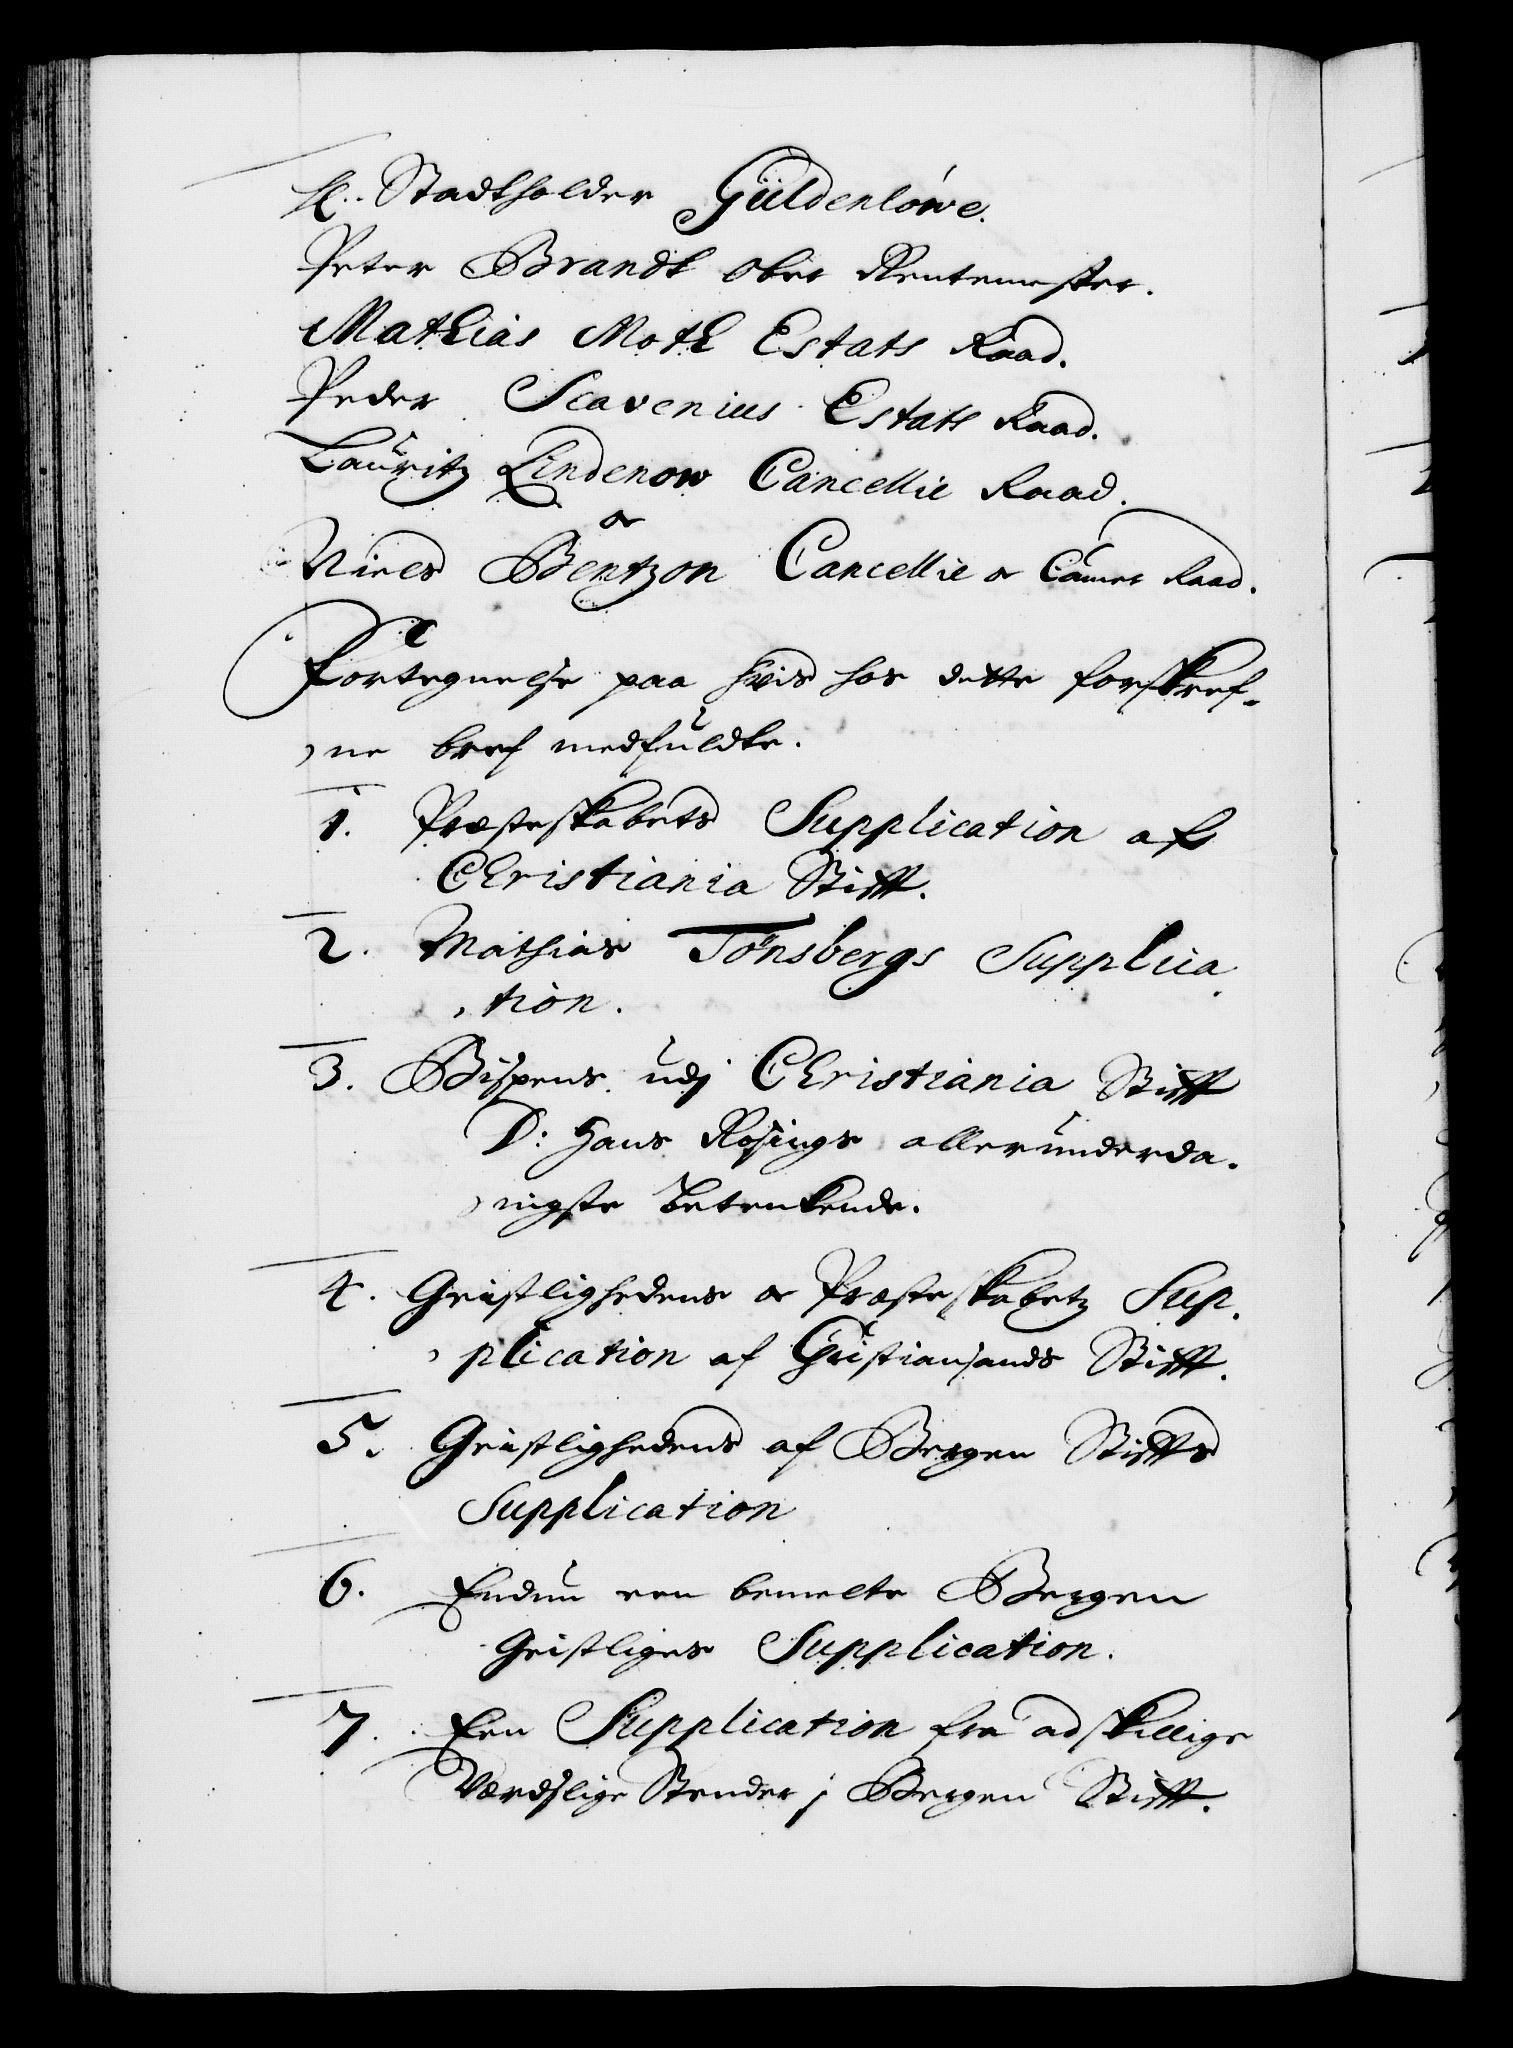 H. Stadtholder Güldenlöwe.
Peter Brandt Ober Rentemester.
Mathias Moth Estats Raad.
Peder Scavenius Estats Raad.
Lauritz Lindenow Cancellie Raad.
oc
Niels Bentzon Cancellie oc Camer Raad.
Fortegnelse paa hvis hos dette forskref-
ne bref medfuldte.
1. Præsteskabets Supplication af
Christiania Stifft.
2. Mathias Tönsbergs Supplica
tion.
3. Bispens udj Christiania Stifft
D: Hans Rosings allerunderda-
nigste betenkende.
4. Geistlighedens oc Præsteskabetz Sup-
plication af Christiansands Stifft.
5. Geistlighedens af Bergen Stiffts
Supplication
6. Endnu een bemelte Bergen
Geistliges Supplication.
7. Een Supplication fra adskillige
Værdslige Stender j Bergen Stifft.